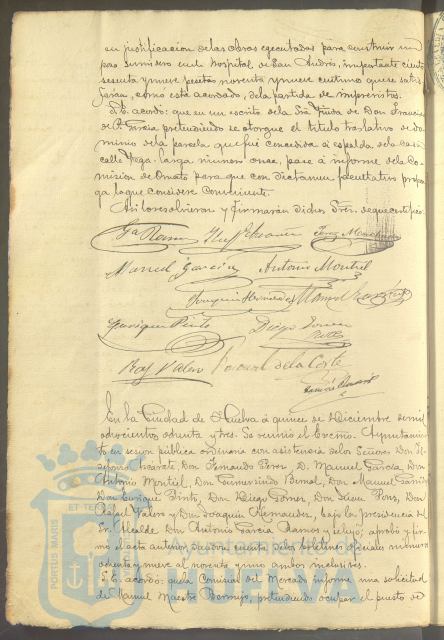 en justificacion de las obras egecutadas para construir un
pozo sumidero en el Hospital de San Andrés, importante ciento
sesenta y nueve pesetas noventa y nueve centimos que se satis
fagan, como está acordado, de la partida de imprevistos.
S.E. acordó: que en un escrito de la Sra. Viuda de Don Francisco
de P. Garcia pretendiendo se otorgue el titulo traslativo de do
minio de la parcela que fué concedida á espalda de la casa
calle Vega-larga numero once, pase á informe de la Co
mision de Ornato para que con dictamen facultativo propon
ga lo que considere conveniente.
Asi lo resolvieron y firmarán dichos Sres. de que certifico.
Ga. Ramos
Manuel Garcia Antonio Montiel
Joaquin Hernandez Manuel
Enrique Pinto Diego
Raf. Valero de la Corte
En la Ciudad de Huelva á quince de Diciembre de mil
ochocientos ochenta y tres. Se reunió el Excmo. Ayuntamien
to en sesion pública ordinaria con asistencia de los Señores Don
Don Fernando Perez, D. Manuel Garcia, Don
Antonio Montiel, Don Gumersindo Bernal, Don Manuel
Don Enrique Pinto, Don Diego Don Ponz, Don
Rafael Valero y Don Joaquin Hernandez, bajo la presidencia del
Sr. Alcalde Don Antonio Garcia Ramos y leyó, aprobó y fir
mó el acta anterior
ochenta y nueve al noventa y uno ambos inclusives.
S.E. acordó: que la Comision del Mercado informe una solicitud
de Manuel Maestre Bermejo, pretendiendo ocupar el puesto de
PORTUS MARIS ET TERRAE
Ayuntamiento de
HUELVA